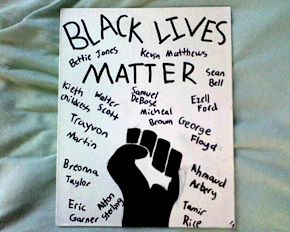 BLACK LIVES
Bettie Jones
Kevin Matthews
MATTER
Sean
Bell
Kieth
Childress
Walter
Scott
Samuel
DeBose
Ezell
Ford
Micheal
Brown
Trayvon
Martin
George
Floyd
Breonna
Taylor
Ahmaud
Arbery
Eric
Garner
Alton
Sterling
Tamir
Rice